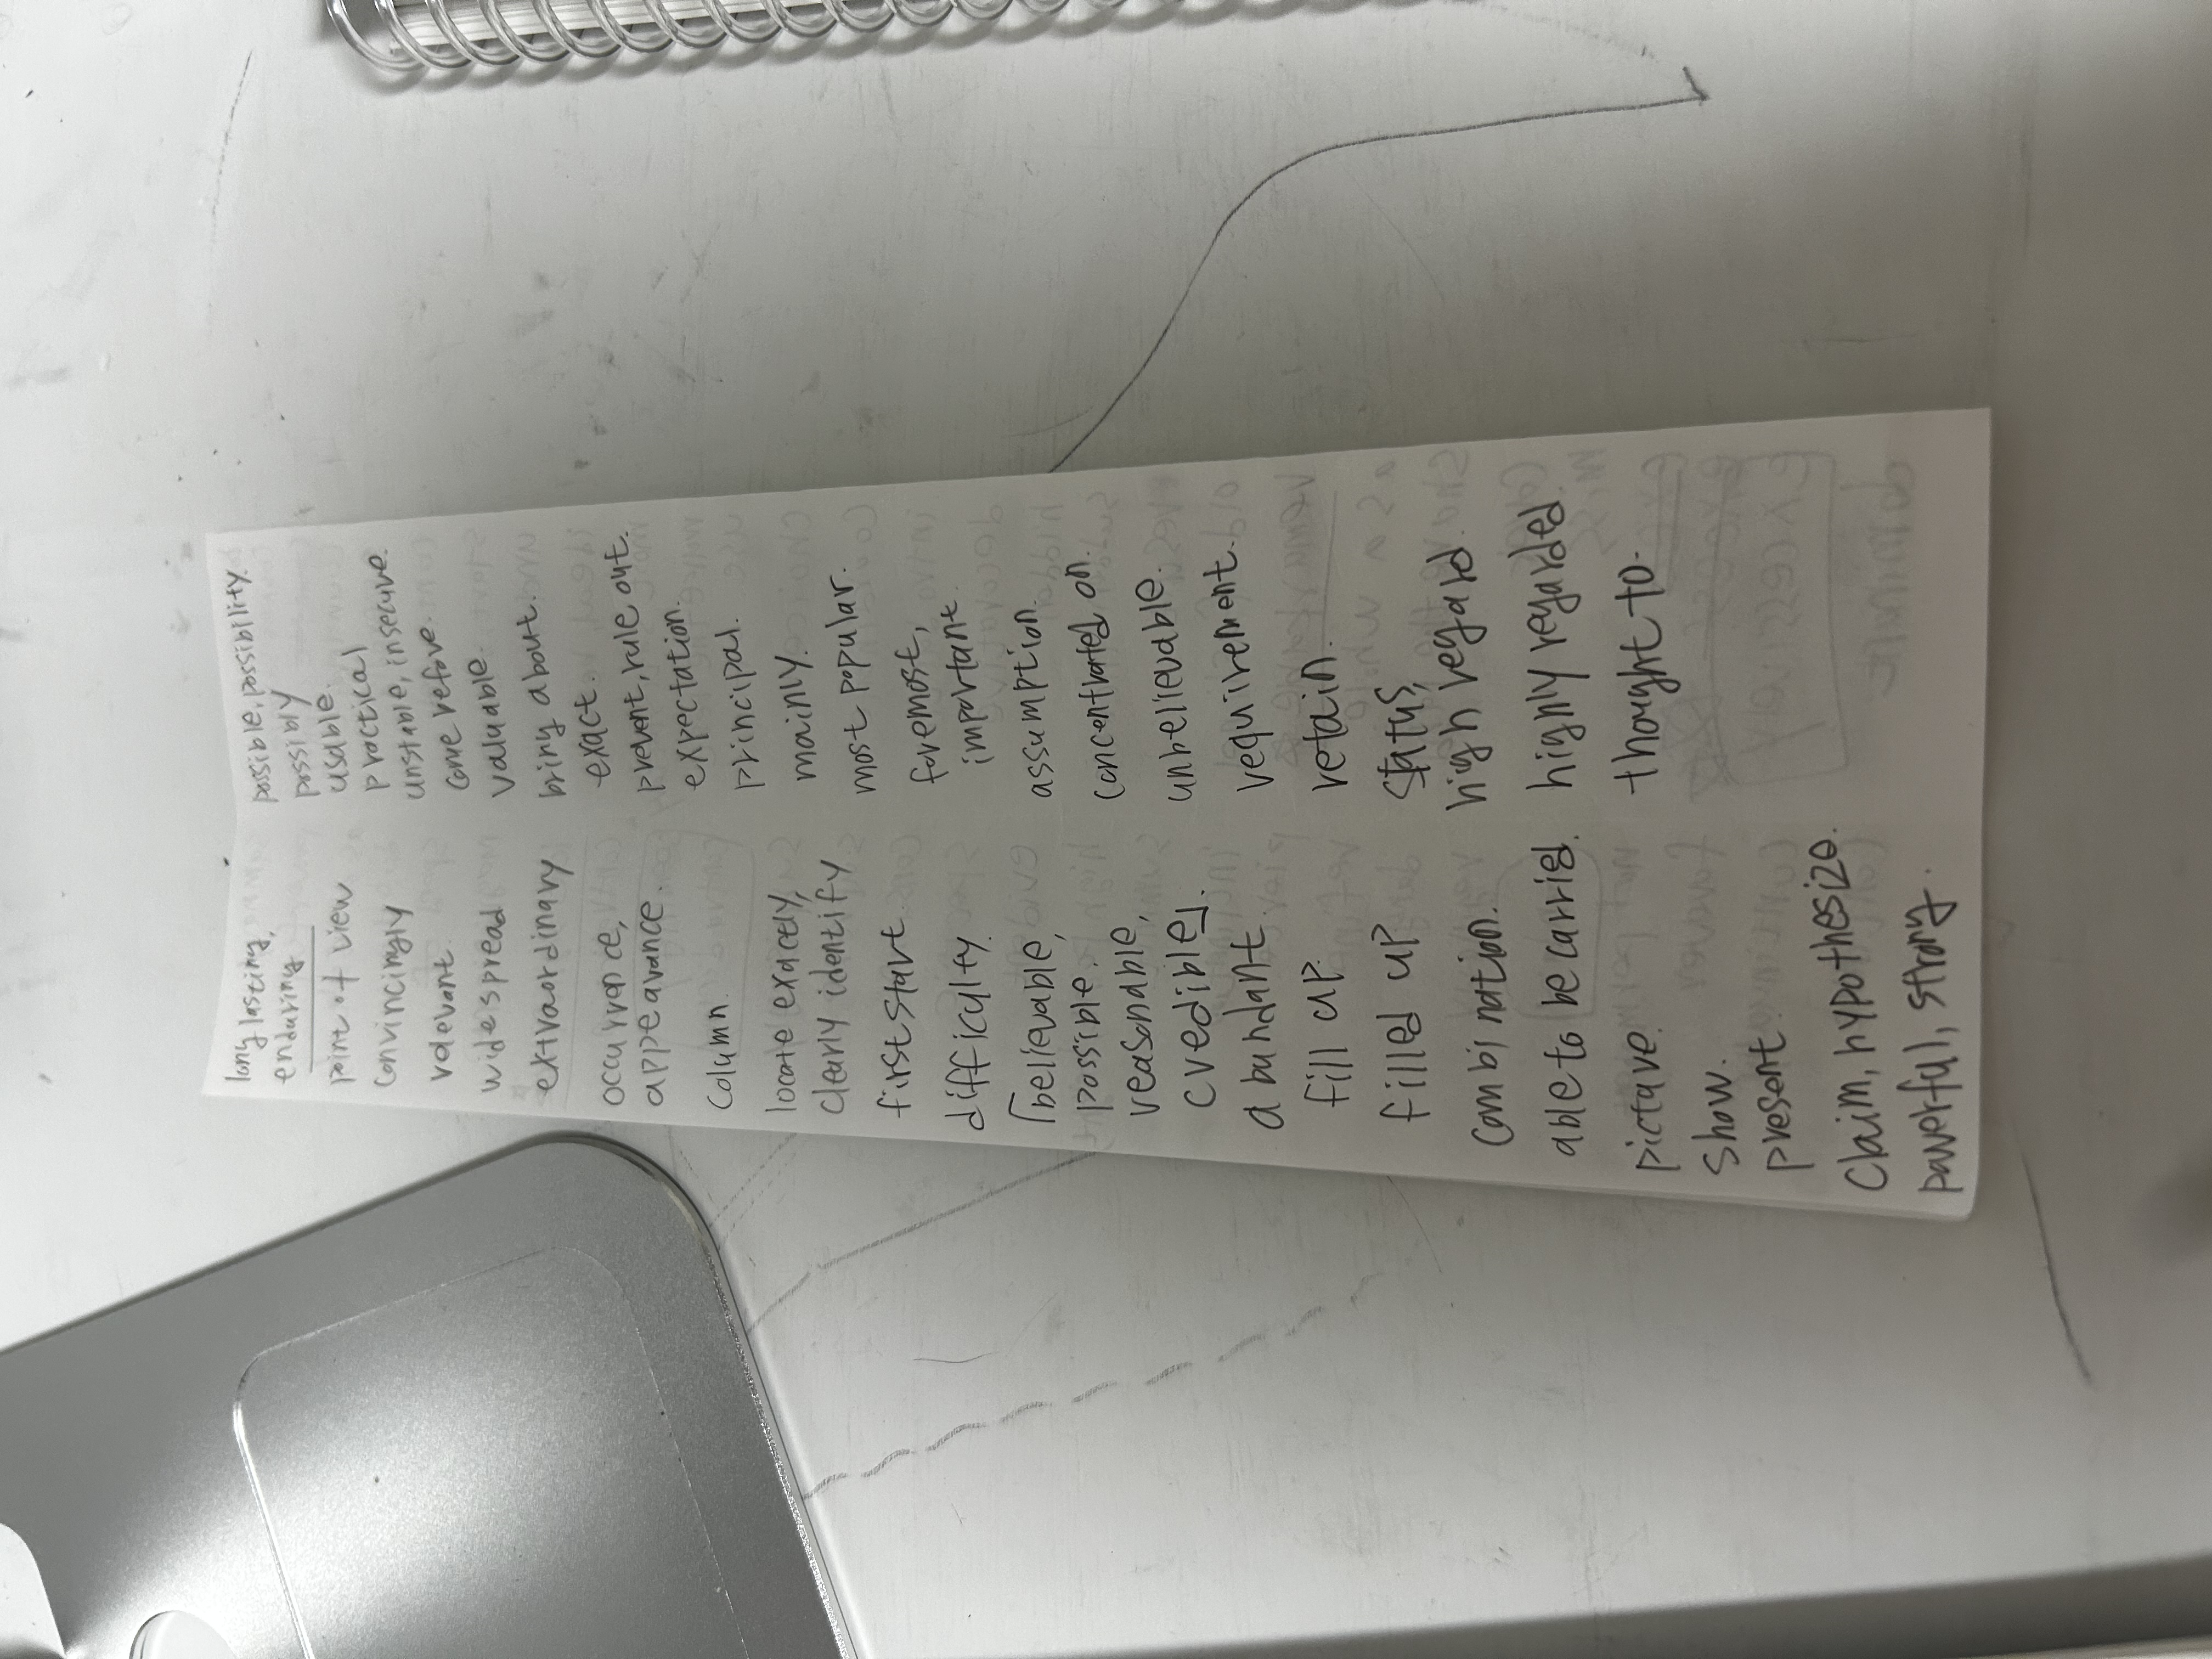 long lasting,
enduring
point of view
convincingly
relevant.
widespread
extraordinary
occurrence,
appearance.
column.
locate exacely,
clearly identify
first start.
difficulty.
believable,
possible.
reasonable,
credible.
abundant.
fill up.
filled up
combination.
able to be carried.
picture.
show.
present.
Claim, hypothesize.
powerful, strong.
possible, possibility.
possibly
usable.
practical
unstable, insecure.
come before.
valuable.
bring about.
exact.
prevent, rule out.
expectation.
principal.
mainly.
most popular.
foremost,
important.
assumption.
concentrated on.
unbelievable.
requirement.
retain.
status,
high regard.
highly regarded.
thought to.